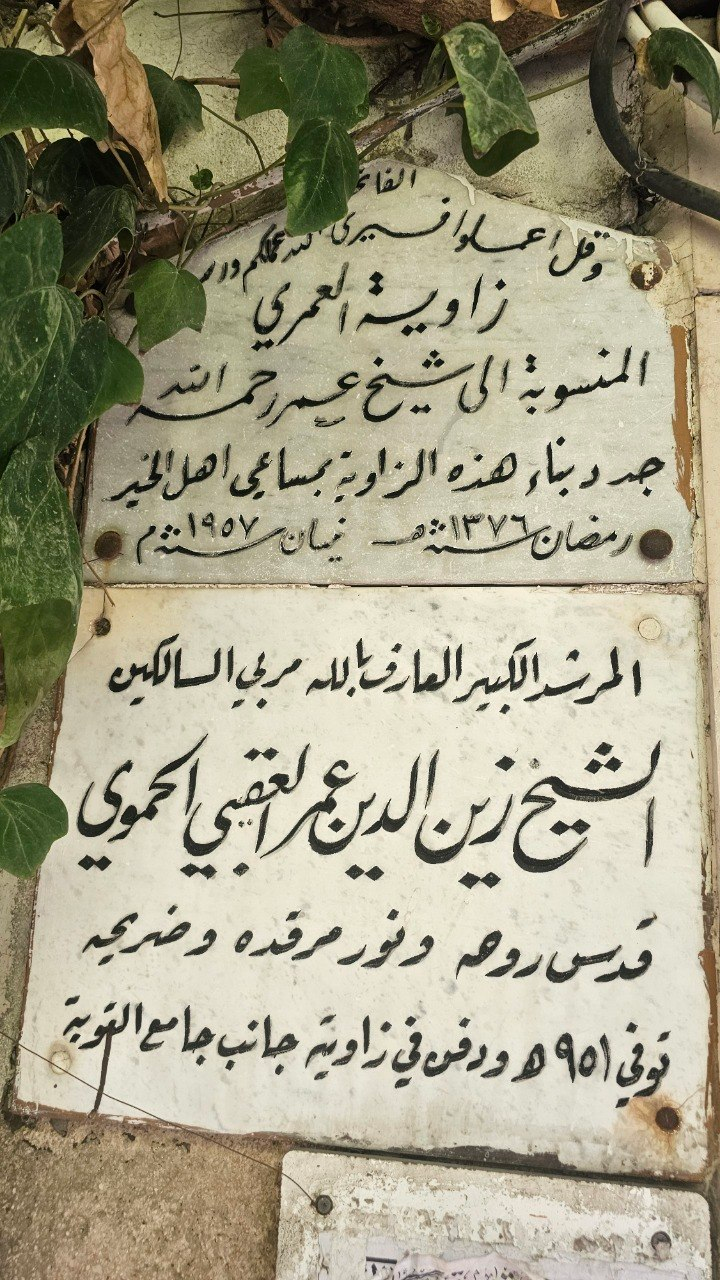 الفاتحة
وقل اعملوا فسيرى الله عملكم ورسو
زاوية العمري
المنسوبة الى شيخ عمر رحمه الله
جدد بناء هذه الزاوية بمساعي اهل الخير
رمضان سنة ١٣٧٦ هـ نيسان سنة ١٩٥٧ م
المرشد الكبير العارف بالله مربي السالكين
الشيخ زين الدين عمر العقيبي الحموي
قدس روحه ونور مرقده وضريحه
توفي ٩٥١ ه ودفن في زاوية جانب جامع التوبة